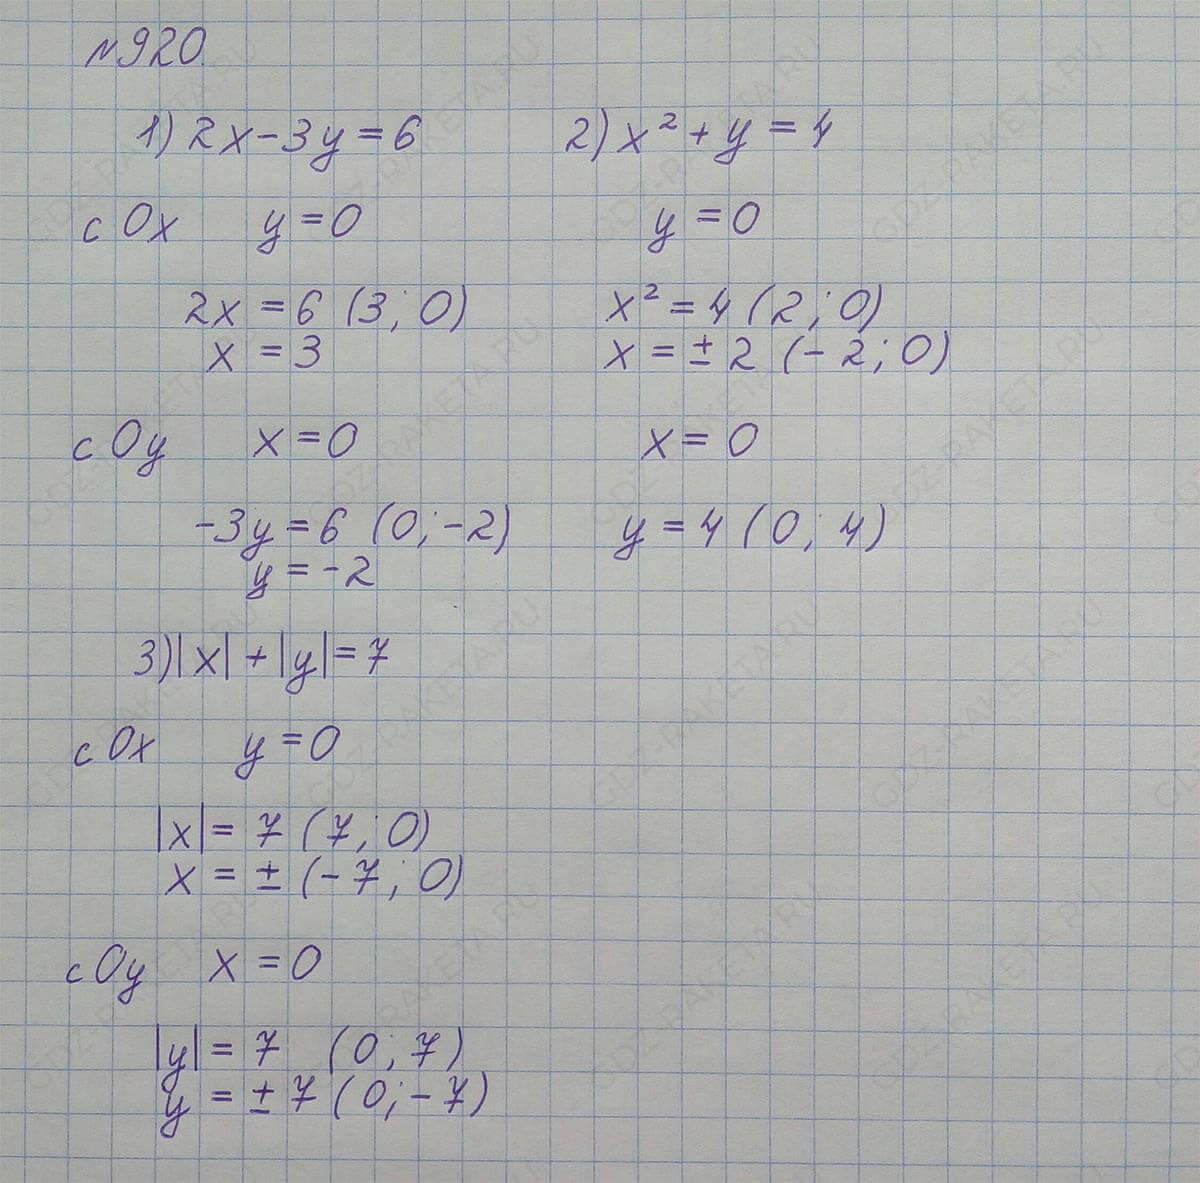 №920.
1) 2x-3y=6
2) x²+y=4
с Ox y=0
y=0
2x=6 (3; 0)
x²=4 (2; 0)
x=3
x=±2 (-2; 0)
с Oy x=0
x=0
-3y=6 (0; -2)
y=4 (0; 4)
y=-2
3) |x|+|y|=7
с Ox y=0
|x|=7 (7; 0)
x=± (-7; 0)
с Oy x=0
|y|=7 (0; 7)
y=±7 (0; -7)
GDZ-RAKETA.RU